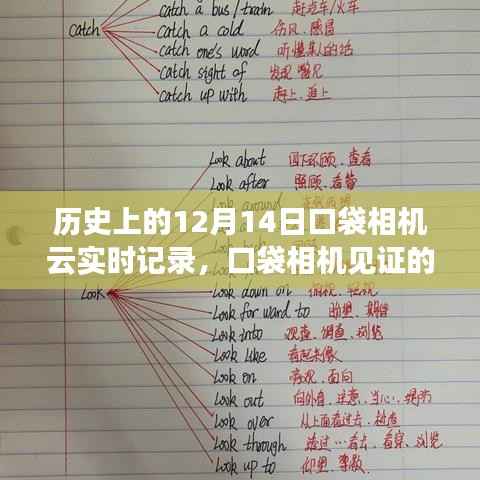 catch a bus/train 赶汽车/火车
catch a cold 伤风，感冒
Catch
catch one's word 听懂某人的话
catch sight of 发现，瞥见
catch up with 赶上，追上
Look about 四下环顾，查看
Look after 照顾，看管
Look around
历史上的12月14日口袋相机
云实时记录，口袋相机见证的
Look
Look down on
Look forward to 盼望，期待
Look into 观查，调查，浏览
Look like 看起来像
Look on 旁观，面向
Look out 向外看，注意，当心，提防
Look over 从上面看过去，检查
Look through 透过…看去，看穿，浏览
Look up to 仰望，尊敬